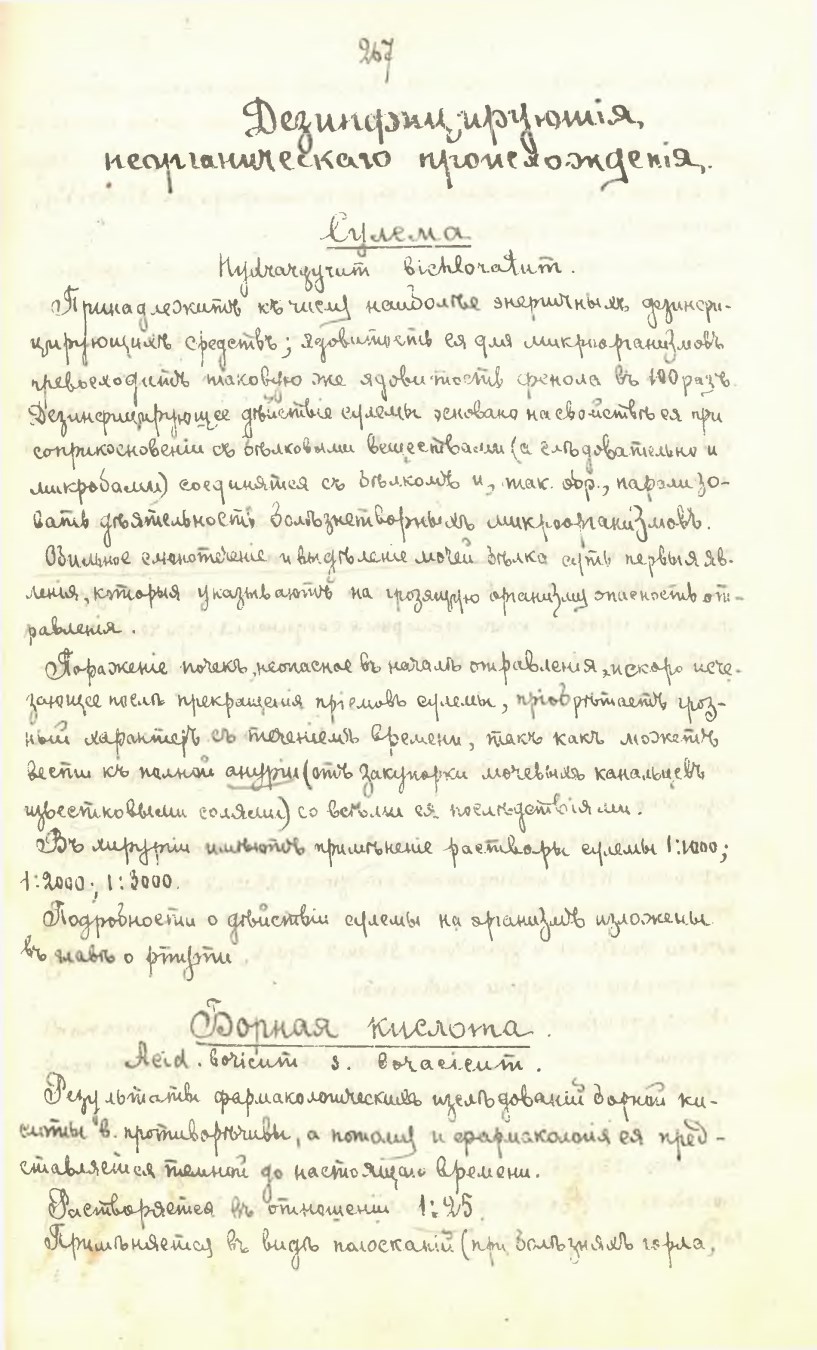 267
Дезинфицирующія,
неорганическаго происхожденія.
Сулема
Hydrargyrum bichloratum.
Принадлежитъ къ числу наиболѣе энергичныхъ дезинфи-
цирующихъ средствъ; ядовитость ея для микроорганизмовъ
превосходитъ таковую же ядовитость фенола въ 100 разъ.
Дезинфицирующее дѣйствіе сулемы основано на свойствѣ ея при
соприкосновеніи съ бѣлковыми веществами (а слѣдовательно и
микробами) соединятся съ бѣлкомъ и, так. обр., парализо-
вать дѣятельность болѣзнетворныхъ микроорганизмовъ.
Обильное слюнотеченіе и выдѣленіе мочей бѣлка суть первыя яв-
ленія, которыя указываютъ на грозящую организму опасность от-
равленія.
Пораженіе почекъ, неопасное въ началѣ отравленія, и скоро исче-
зающее послѣ прекращенія пріемовъ сулемы, пріобрѣтаетъ гроз-
ный характеръ съ теченіемъ времени, такъ какъ можетъ
вести къ полной ануріи (отъ закупорки мочевыхъ канальцевъ
известковыми солями) со всѣми ея послѣдствіями.
Въ хирургіи имѣютъ примѣненіе растворы сулемы 1:1000;
1:2000; 1:3000.
Подробности о дѣйствіи сулемы на организмъ изложены
въ главѣ о ртути
Борная кислота.
Acid. boricum s. boracicum.
Результаты фармакологическихъ изслѣдованій борной ки-
слоты противорѣчивы, а потому и фармакологія ея пред-
ставляется темной до настоящаго времени.
Растворяется въ отношеніи 1:25.
Примѣняется въ видѣ полосканій (при болѣзняхъ горла,